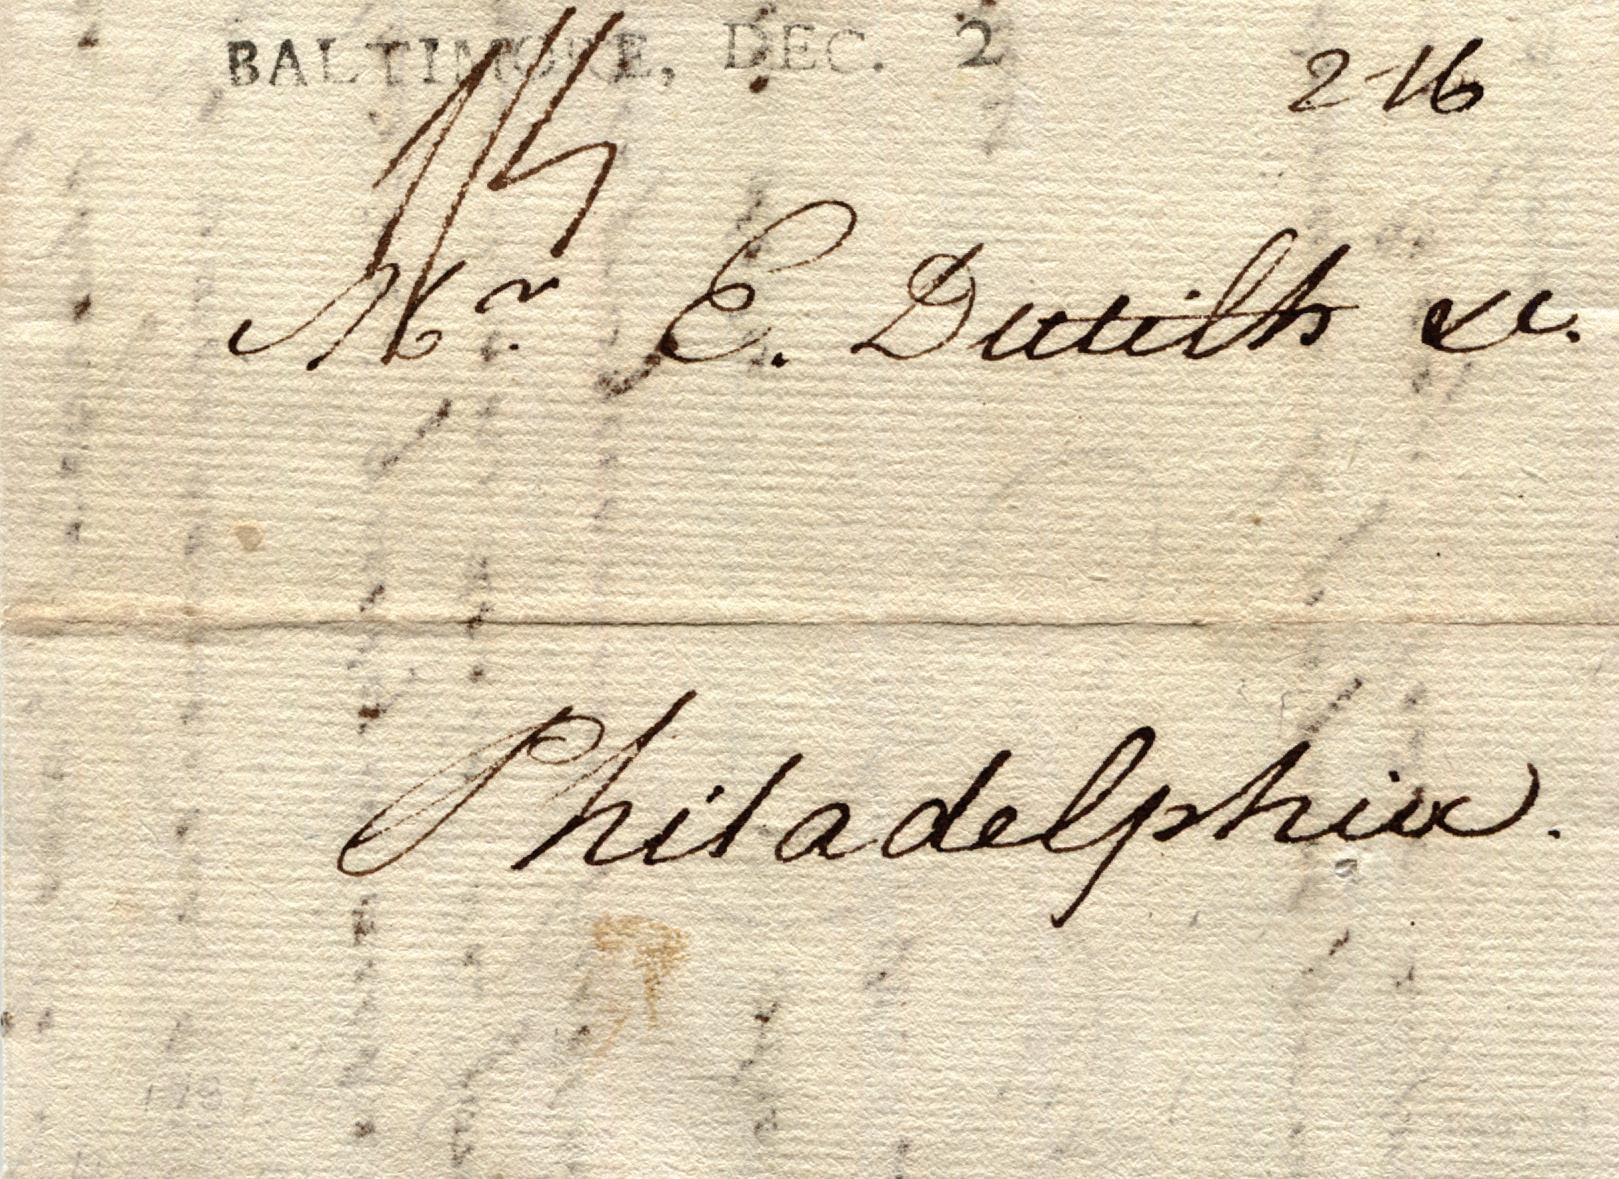 BALTIMORE, DEC. 2
2-16
Mr. E. Dutilh &c.
Philadelphia.